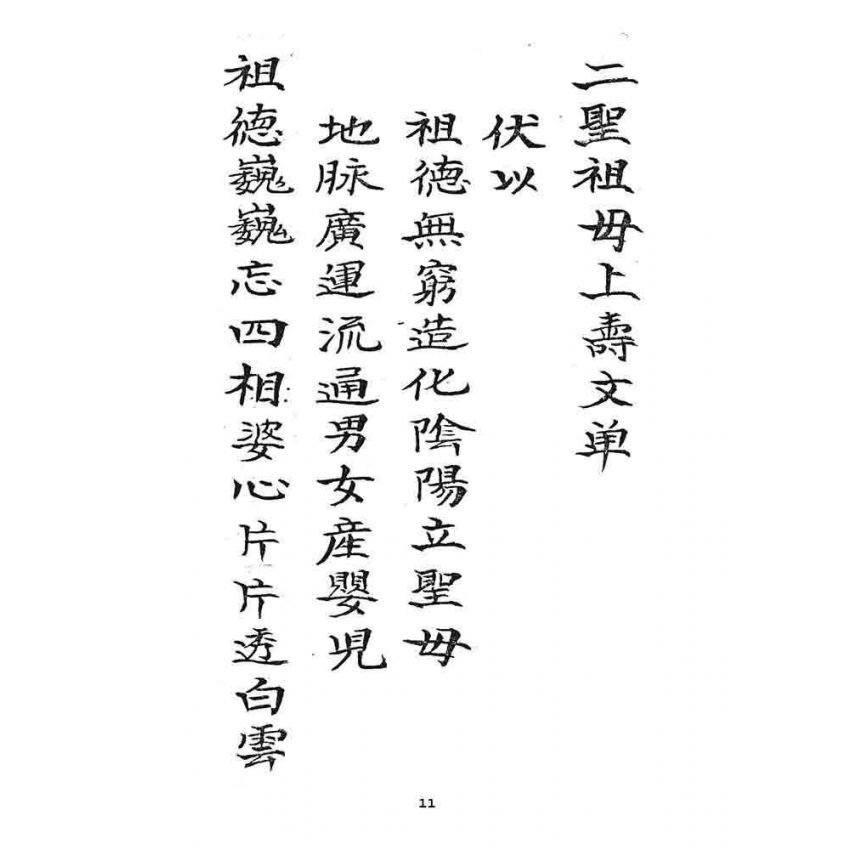 二聖祖毋上壽文单
伏以
祖德無窮造化陰陽立聖毋
地脉廣運流通男女産嬰児
祖德巍巍忘四相婆心片片透白雲
11